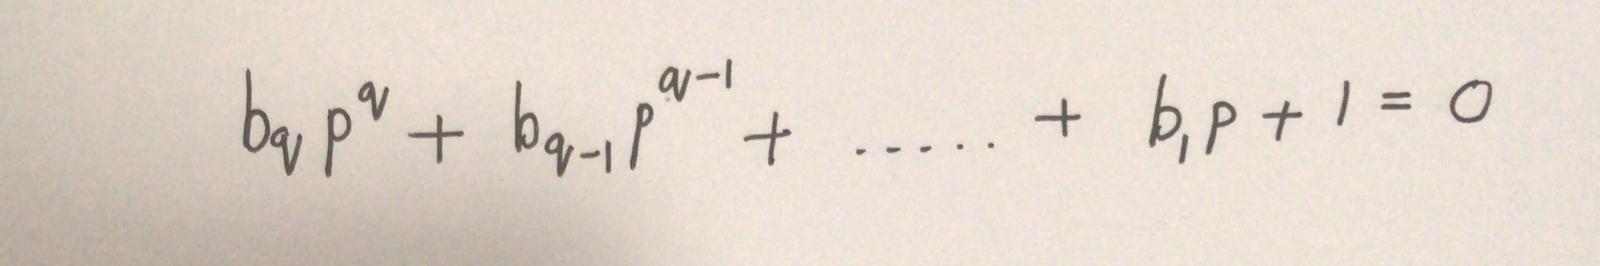 b_q p^q + b_{q-1} p^{q-1} + ..... + b_1 p + 1 = 0